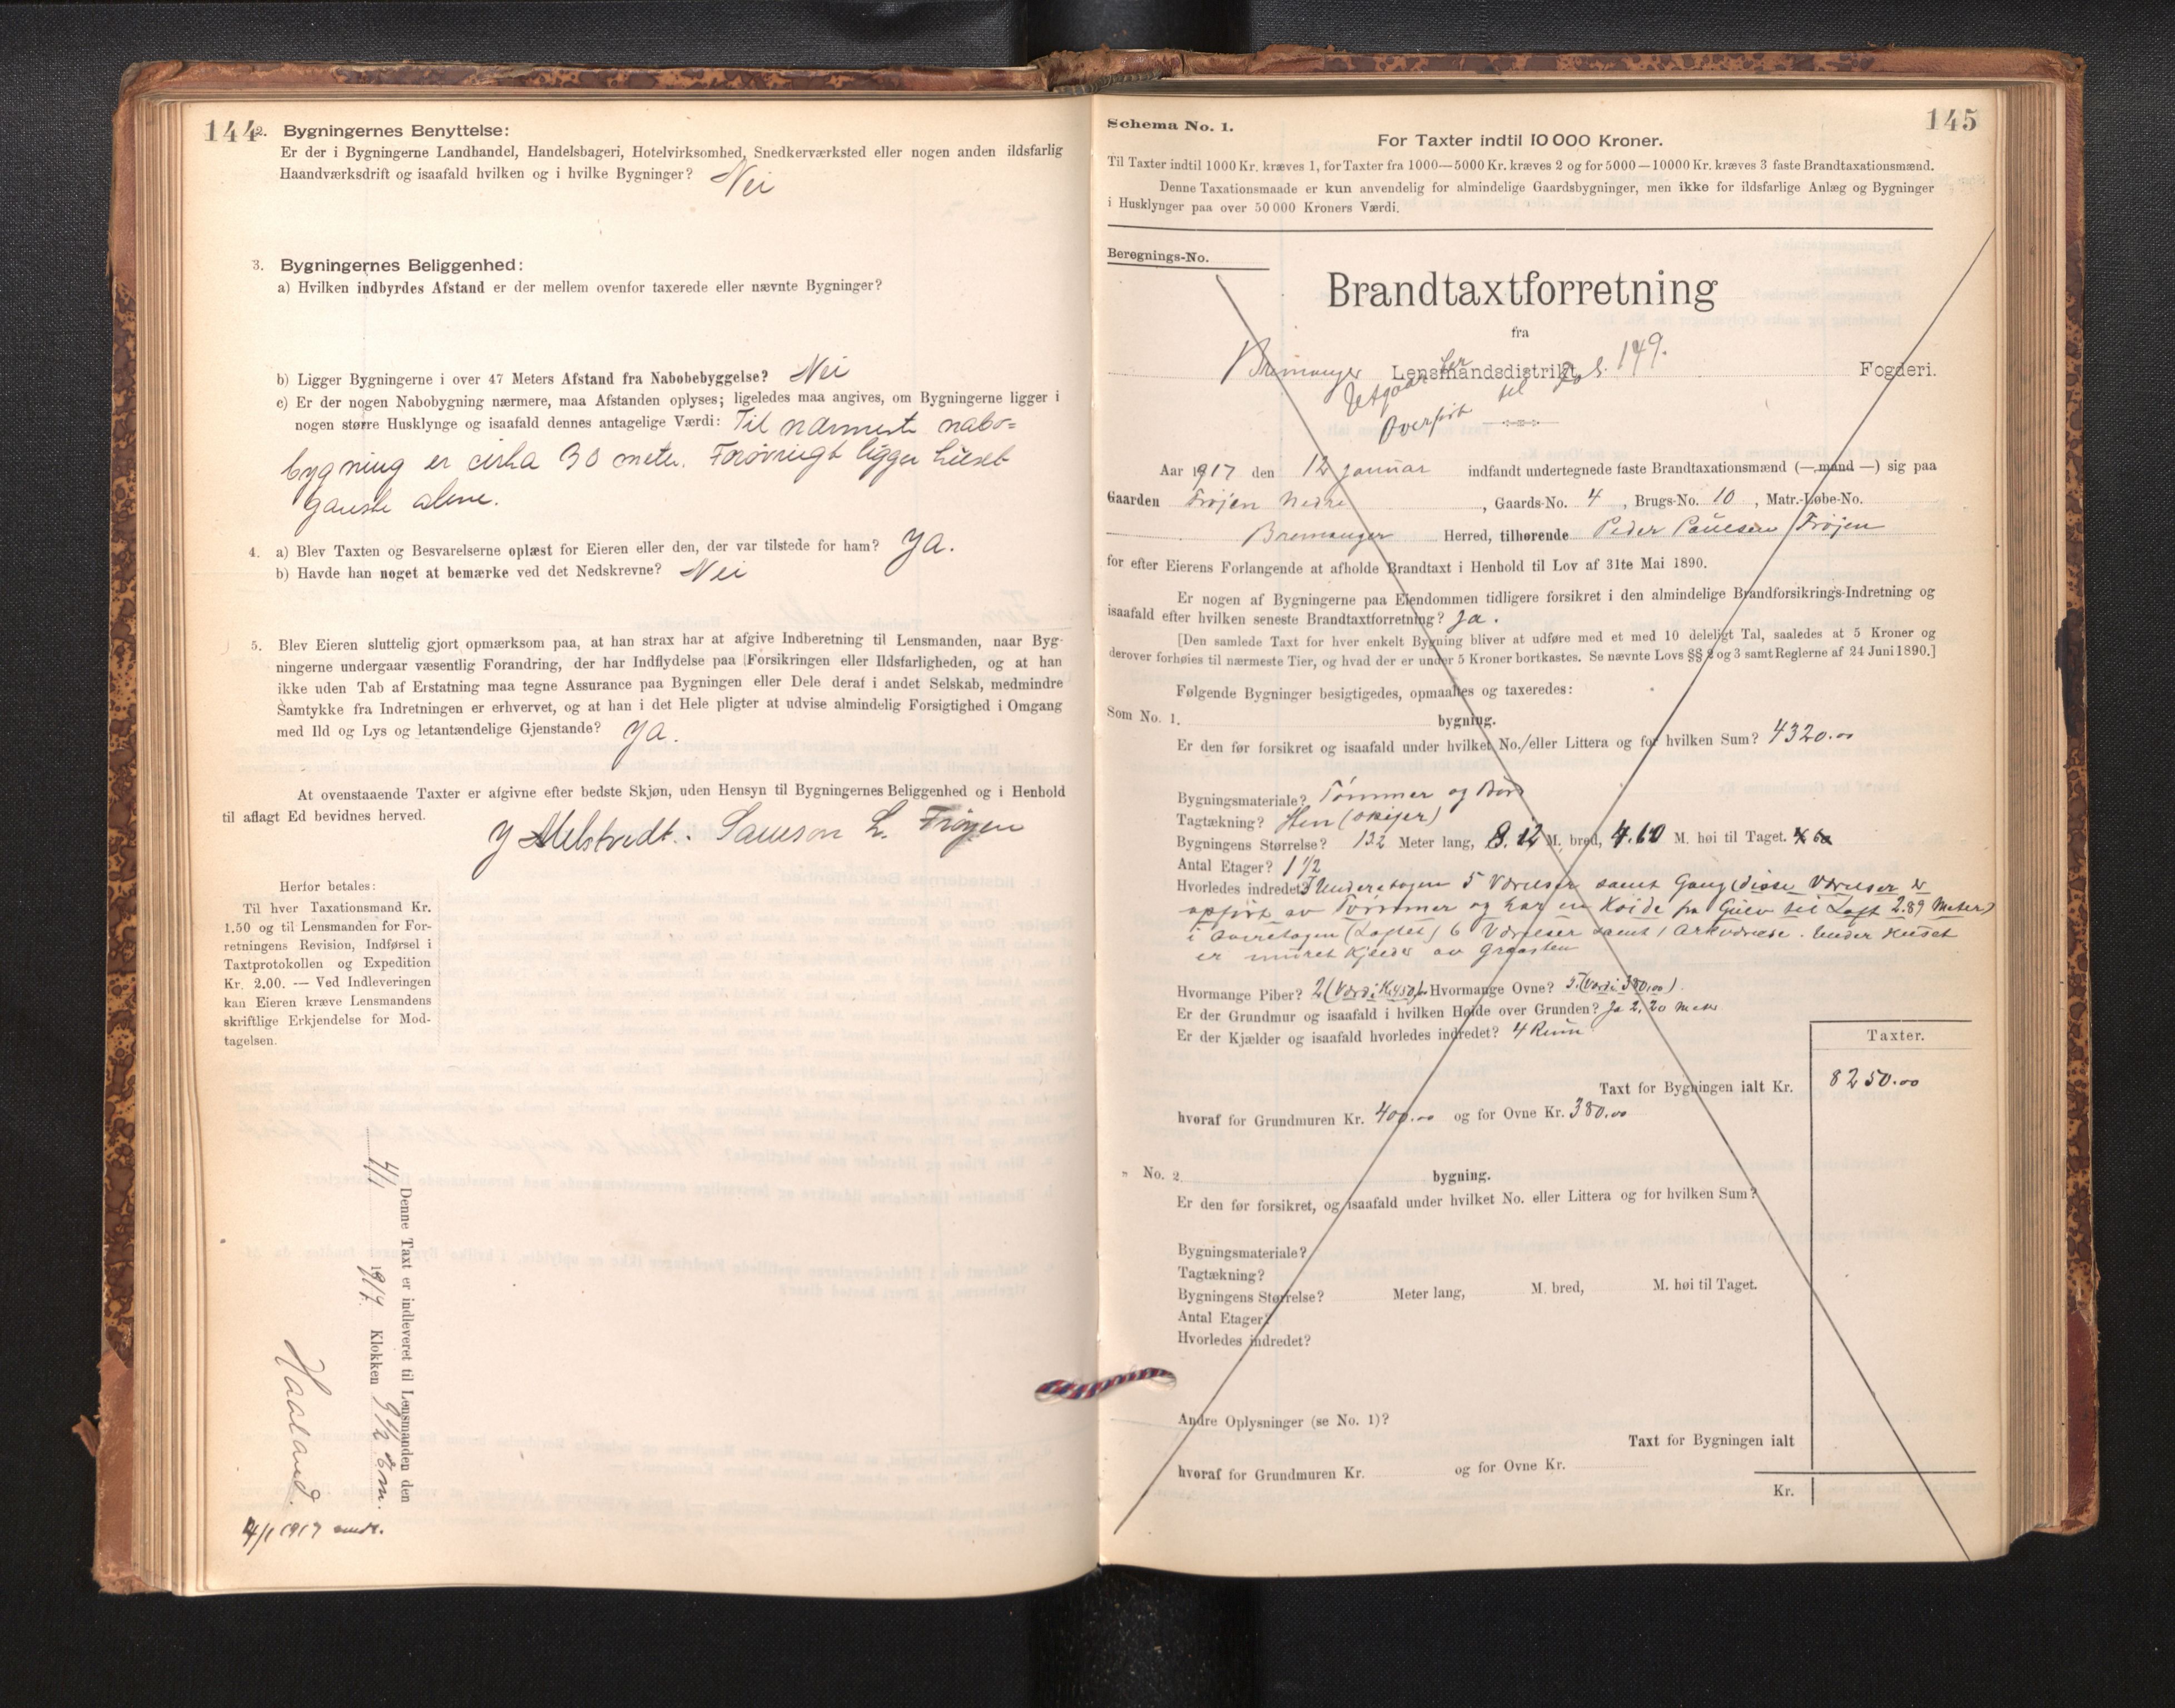 144
2. Bygningernes Benyttelse:
Er der i Bygningerne Landhandel, Handelsbageri, Hotelvirksomhed, Snedkerværksted eller nogen anden ildsfarlig
Haandværksdrift og isaafald hvilken og i hvilke Bygninger? Nei
3. Bygningernes Beliggenhed:
a) Hvilken indbyrdes Afstand er der mellem ovenfor taxerede eller nævnte Bygninger?
b) Ligger Bygningerne i over 47 Meters Afstand fra Nabobebyggelse? Nei
c) Er der nogen Nabobygning nærmere, maa Afstanden oplyses; ligeledes maa angives, om Bygningerne ligger i
nogen større Husklynge og isaafald dennes antagelige Værdi: Til nærmeste nabo=
bygning er cirka 30 meter. Forøvrigt ligger huset
ganske alene.
4. a) Blev Taxten og Besvarelserne oplæst for Eieren eller den, der var tilstede for ham? Ja.
b) Havde han noget at bemærke ved det Nedskrevne? Nei
5. Blev Eieren sluttelig gjort opmærksom paa, at han strax har at afgive Indberetning til Lensmanden, naar Byg-
ningerne undergaar væsentlig Forandring, der har Indflydelse paa Forsikringen eller Ildsfarligheden, og at han
ikke uden Tab af Erstatning maa tegne Assurance paa Bygningen eller Dele deraf i andet Selskab, medmindre
Samtykke fra Indretningen er erhvervet, og at han i det Hele pligter at udvise almindelig Forsigtighed i Omgang
med Ild og Lys og letantændelige Gjenstande? Ja.
At ovenstaaende Taxter er afgivne efter bedste Skjøn, uden Hensyn til Bygningernes Beliggenhed og i Henhold
til aflagt Ed bevidnes herved.
Samson L. Frøyen
Herfor betales:
Til hver Taxationsmand Kr.
1.50 og til Lensmanden for For-
retningens Revision, Indførsel i
Taxtprotokollen og Expedition
Kr. 2.00. — Ved Indleveringen
kan Eieren kræve Lensmandens
skriftlige Erkjendelse for Mod-
tagelsen.
Denne Taxt er indleveret til Lensmanden den
4/1 1917 Klokken 9 1/2 Em.
Haaland.
4/1 1917
145
Schema No. 1.
For Taxter indtil 10 000 Kroner.
Til Taxter indtil 1000 Kr. kræves 1, for Taxter fra 1000—5000 Kr. kræves 2 og for 5000—10000 Kr. kræves 3 faste Brandtaxationsmænd.
Denne Taxationsmaade er kun anvendelig for almindelige Gaardsbygninger, men ikke for ildsfarlige Anlæg og Bygninger
i Husklynger paa over 50 000 Kroners Værdi.
Beregnings-No.
Brandtaxtforretning
fra
Bremanger Lensmandsdistrikt, Fogderi.
Utgaar her
Overført til fol. 149.
Aar 1917 den 12 januar indfandt undertegnede faste Brandtaxationsmænd (— mand —) sig paa
Gaarden Frøjen Nedre, Gaards-No. 4, Brugs-No. 10, Matr.-Løbe-No.
Bremanger Herred, tilhørende Peder Paulsen Frøjen
for efter Eierens Forlangende at afholde Brandtaxt i Henhold til Lov af 31te Mai 1890.
Er nogen af Bygningerne paa Eiendommen tidligere forsikret i den almindelige Brandforsikrings-Indretning og
isaafald efter hvilken seneste Brandtaxtforretning? Ja.
[Den samlede Taxt for hver enkelt Bygning bliver at udføre med et med 10 deleligt Tal, saaledes at 5 Kroner og
derover forhøies til nærmeste Tier, og hvad der er under 5 Kroner bortkastes. Se nævnte Lovs §§ 2 og 3 samt Reglerne af 24 Juni 1890.]
Følgende Bygninger besigtigedes, opmaaltes og taxeredes:
Som No. 1. bygning.
Er den før forsikret og isaafald under hvilket No. eller Littera og for hvilken Sum? 4320.00
Bygningsmateriale? Tømmer og Bord
Tagtækning? Sten (skifer)
Bygningens Størrelse? 13.2 Meter lang, 8.12 M. bred, 4.60 M. høi til Taget.
Antal Etager? 1 1/2
Hvorledes indredet? I Underetagen 5 Værelser samt Gang (disse Værelser er
opført av Tømmer og har en Høide fra Gulv til Loft 2.89 Meter)
i Overetagen (Loftet) 6 Værelser samt 1 Arkværelse. Under Huset
er muret Kjelder av Graasten
Hvormange Piber? 2 (Værdi Kr 450) Hvormange Ovne? 5 (Værdi 380,00)
Er der Grundmur og isaafald i hvilken Høide over Grunden? Ja 2,20 Meter
Er der Kjælder og isaafald hvorledes indredet? 4 Rum
Taxter.
Taxt for Bygningen ialt Kr. 8250.00
hvoraf for Grundmuren Kr. 400.00 og for Ovne Kr. 380.00
" No. 2. bygning.
Er den før forsikret, og isaafald under hvilket No. eller Littera og for hvilken Sum?
Bygningsmateriale?
Tagtækning?
Bygningens Størrelse? Meter lang, M. bred, M. høi til Taget.
Antal Etager?
Hvorledes indredet?
Andre Oplysninger (se No. 1)?
Taxt for Bygningen ialt
hvoraf for Grundmuren Kr. og for Ovne Kr.
Kr.